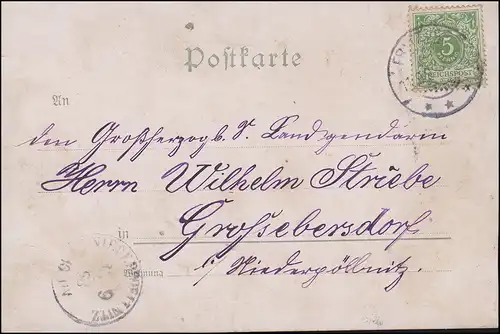 Postkarte
5
REICHSPOST
An
den Großherzogb. S. Landgendarm
Herrn Wilhelm Striebe
in Grossebersdorf
b/ Niederpöllnitz
Wohnung